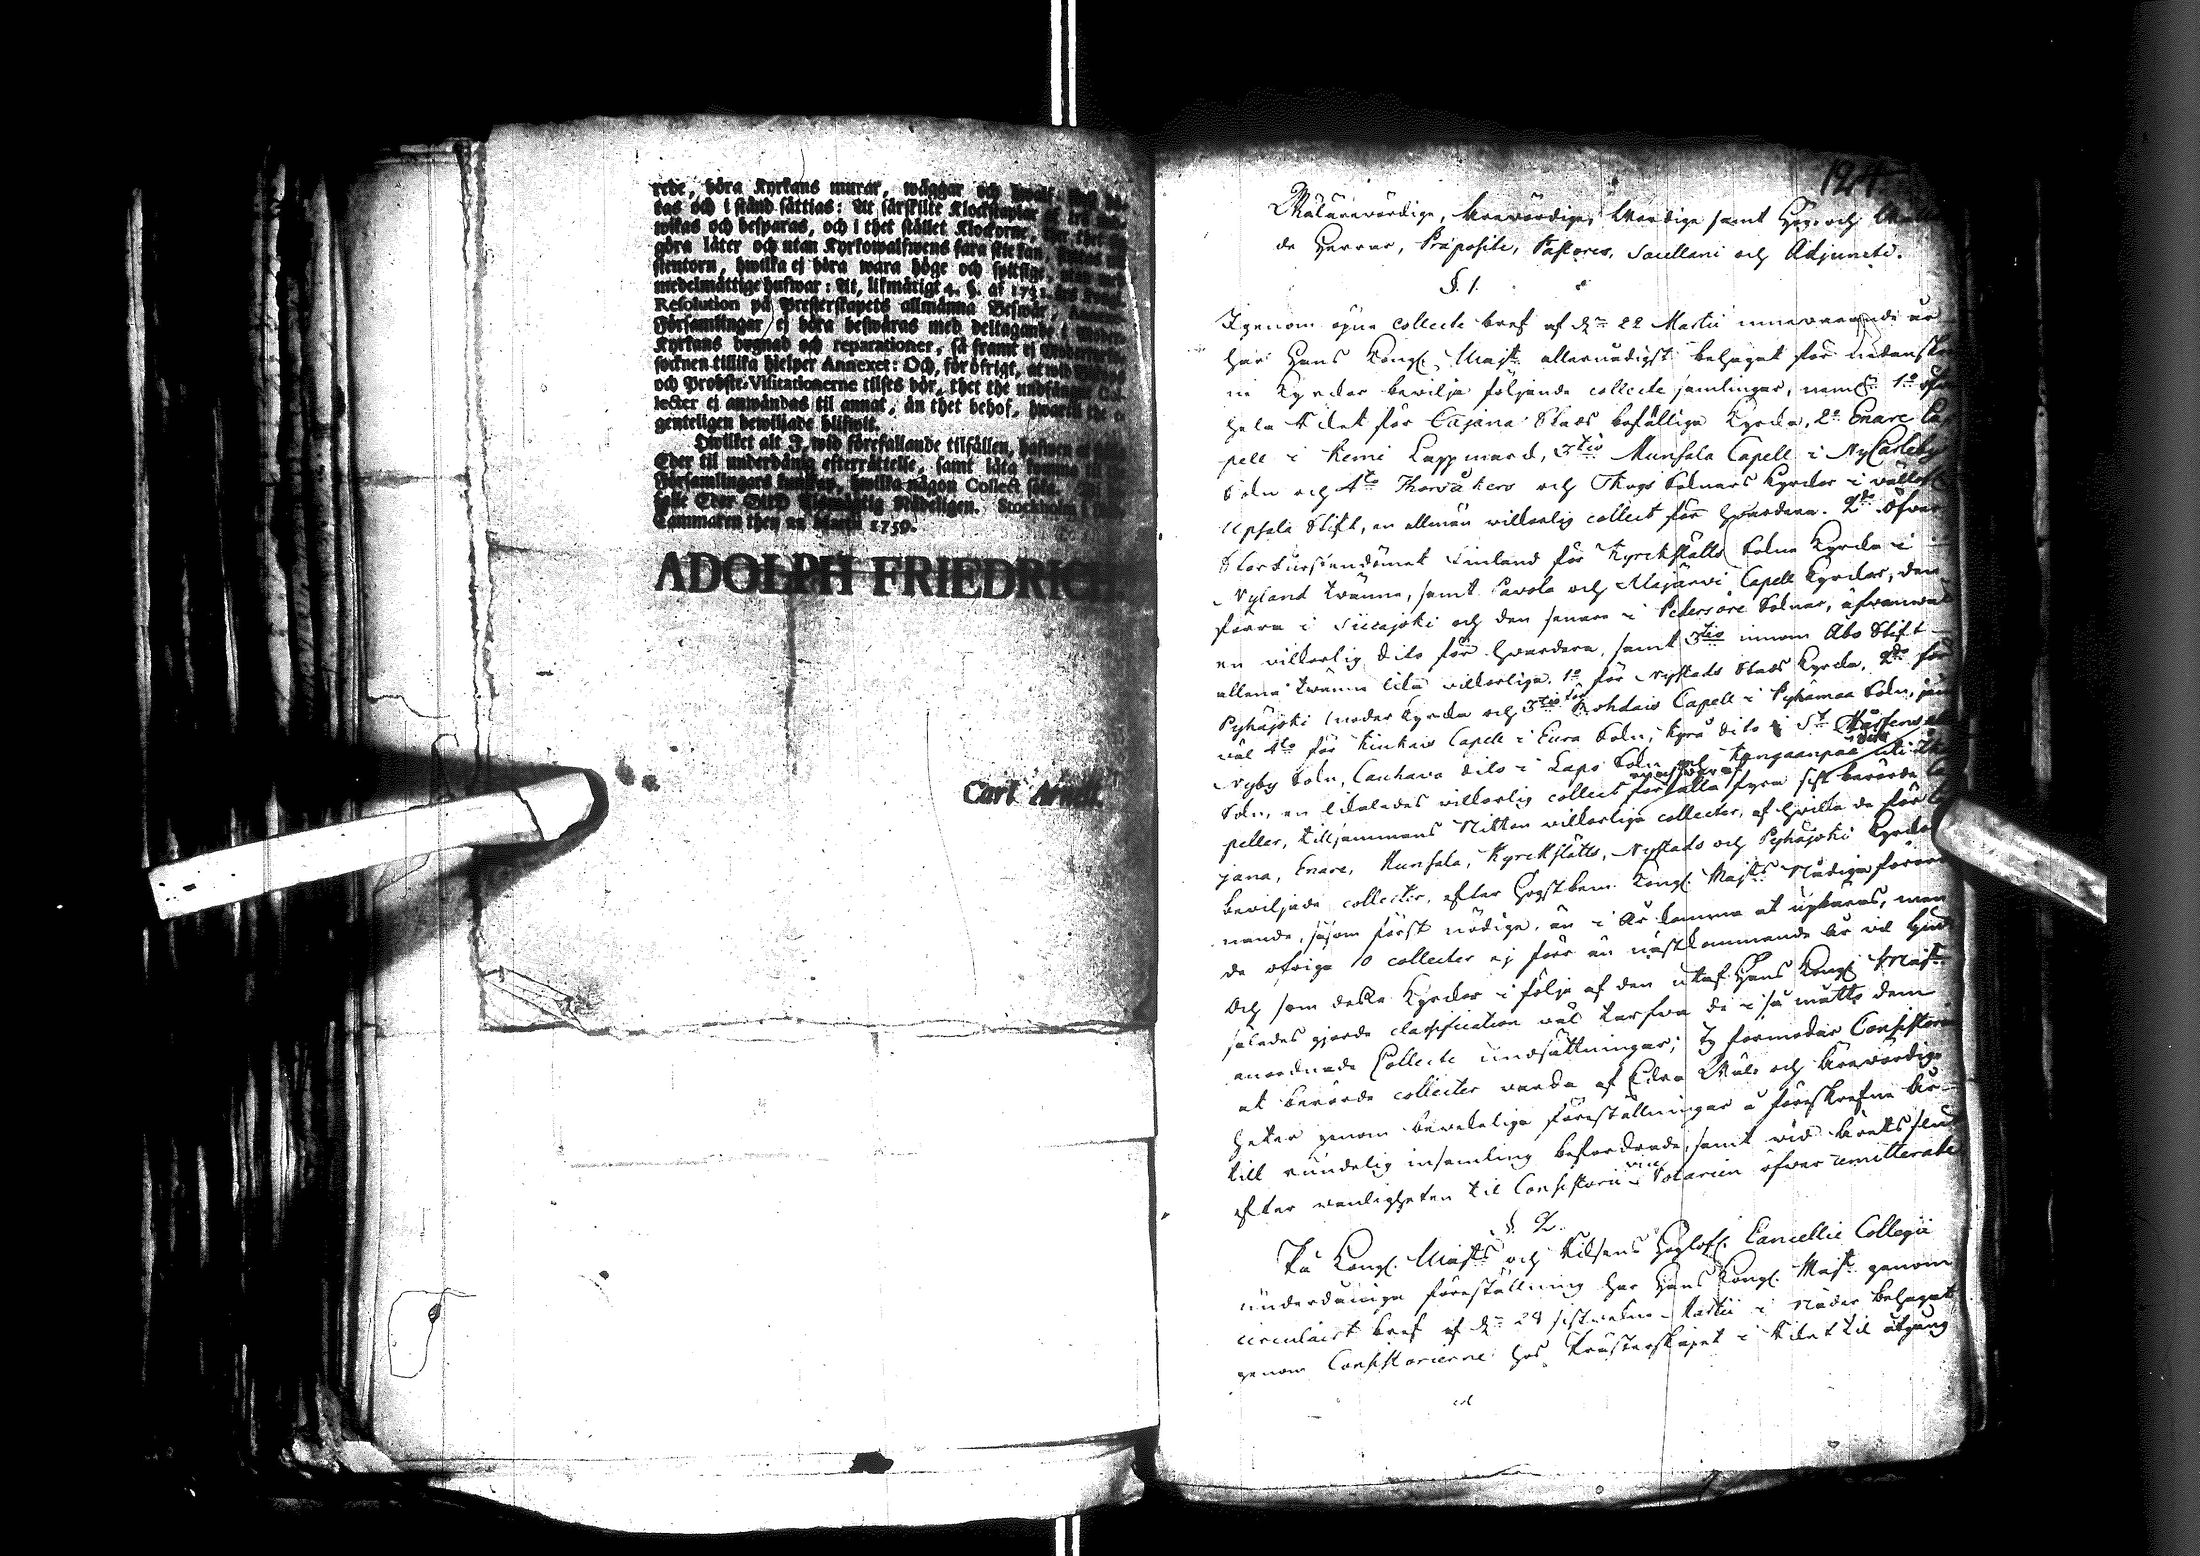 rede, böra Kyrkans murar, wäggar och
tas och i stånd sättias: At särskilte Klockstaplar
wikas och besparas, och i thet stället Klockorne,
göra låter och utan Kyrkowalfwens fara ske kan,
stentorn, hwilka ej böra wara höge och spitsige,
medelmåttige hufwar: At, likmätigt 4. §. af 1731.
Resolution på Presterskapets allmänna Beswär,
Församlingar ej böra beswäras med deltagande i
Kyrkans bygnad och reparationer, så framt ej
socknen tillika hielper Annexet: Och, för öfrigt, at wid
och Probste-Visitationerne tilses bör, thet the undfångne Col-
lecter ej anwändas til annat, än thet behof, hwartil the e-
genteligen bewiljade blifwit.
Hwilket alt I, wid förefallande tilfällen, hafwen at
Eder til underdånig efterrättelse, samt låta komma til
Församlingars kunskap, hwilka någon Collect
Gud Alsmächtig Nådeligen. Stockholm i
Cammaren then 22 Martii 1759.
ADOLPH FRIEDRICH.
Carl
124.
Wälärewördige, Ärewördige, Wördige samt Hög- och
de Herrar, Præpositi, Pastores, Sacellani och Adjuncti.
§. 1.
Igenom öpne collecte bref af d. 22 Martii innewarande år
har Hans Kongl. Majt. allernådigst behagat för nedanskr
ne Kyrckor bewilja följande collecte samlingar, neml. 1o öfwer
hela Riket för Cajana Stads befällige Kyrcka, 2o Enare Ca-
pell i Kemi Lappmarck, 3tio Munsala Capell i NyCarleby
Sokn och 4to Thorsåkers och Skogs Soknars Kyrckor i wällofl.
Upsala Stift, en allmän wilkorlig collect för hwardera. 2do Öfwer
StorFurstendömet Finland för Kyrckslätts Sokne Kyrcka i
Nyland twänne, samt Pavola och Alajärwi Capell Kyrckor, den
förra i Siicajoki och den senare i Pedersöre Soknar, äfwenwäl
en wilkorlig dito för hwardera, samt 3tio innom Åbo Stift
allena twänne lika wilkorliga. 1o för Nystads Stads Kyrcka, 2do för
Pyhäjoki moder Kyrcka och 3tio för Rohdais Capell i Pyhämaa Sokn, jäm
wäl 4to för Kiukais Capell i Eura Sokn, Kyrö dito i St. Mårtens
Nyby Sokn, Cauhava dito i Lapo Sokn och Kangaanpää dito
Sokn, en likaledes wilkorlig collect för alla fyra sist berörde Ca
peller, tillsammans Nitton wilkorliga collecter, af hwilka de för Ca
jana, Enare, Munsala, Kyrckslätts, Nystads och Pyhäjoki Kyrckor
bewiljade collecter, efter högstbem. Kongl. Majts Nådiga förord
nande, såsom först nödige, än i år komma at upbäras, men
de öfriga 10 collecter ej förr än nästkommande år
Och som dessa Kyrckor i följe af den utaf Hans Kongl. Majt
således gjorde classification wäl tarfwa de i så måtto dem
anordnade Collecte undsättningar; Ty förmodar Consistorium
at berörde collecter warda af Edra Wäl- och Ärewördig-
heter genom bewekeliga föreställningar å föreskrefne
till rundelig insamling befordrade, samt wid årets slut
efter wanligheten til Consistorii Notarien öfwer remitterade
§ 2.
På Kongl. Majts och Riksens Höglofl. Cancellie Collegii
underdåniga föreställning har Hans Kongl. Majt. genom
circulairt bref af d. 28 sistwekne Martii i Nåder behagat
genom Consistorierne hos Prästerskapet i Riket til åtgång